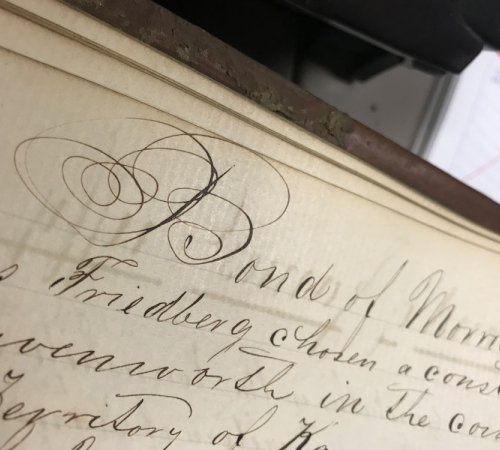 Bond of Morri
s Friedberg chosen a cons
venworth in the cou
Territory of Ka